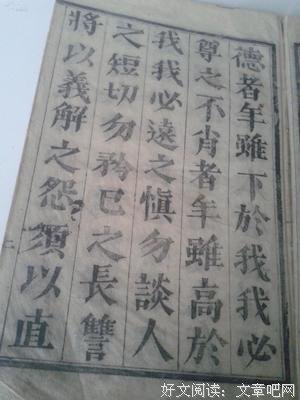 德者年雖下於我我必
尊之不肖者年雖高於
我我必遠之愼勿談人
之短切勿矜已之長讐
將以義解之怨須以直
好文阅读：文章吧网